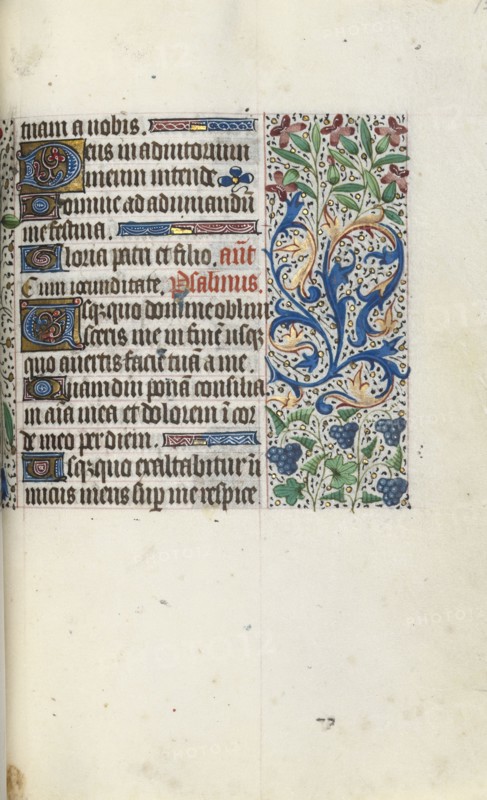 tuam a nobis.
Deus in adiutorium
meum intende
Domine ad adiuuandū
me festina.
Gloria patri et filio. añt
Cum iocunditate. Psalmus.
Usq̄quo domine obliui
sceris me in finē usq̄
quo auertis faciē tuā a me.
Quamdiu ponā consilia
in aīa mea et dolorem ī cor
de meo per diem.
Usq̄quo exaltabitur ini
micus meus sup me respice